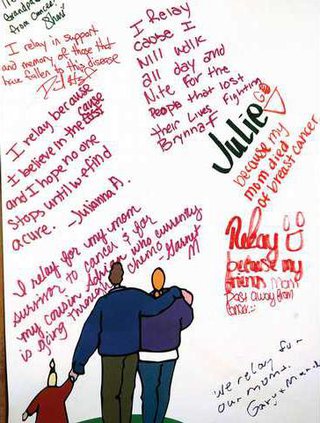 Grandparents
from cancer.
Shan
I relay in support
and memory of those that
have fallen to this disease
I Relay
cause I
Will walk
all day and
Nite For the
People that lost
their Lives Fighting
Brynna-F
I relay because
I believe in the cause
and I hope no one
stops until we find
a cure. -Julianna A.
Julie
because my
mom died
of breast cancer
I relay for my mom
survivor to cancer & for
my cousin who currently
is going through chemo -Garret
M
Relay
because my
friends mom
Past away from
cancer
we relay for
our moms.
Gary +